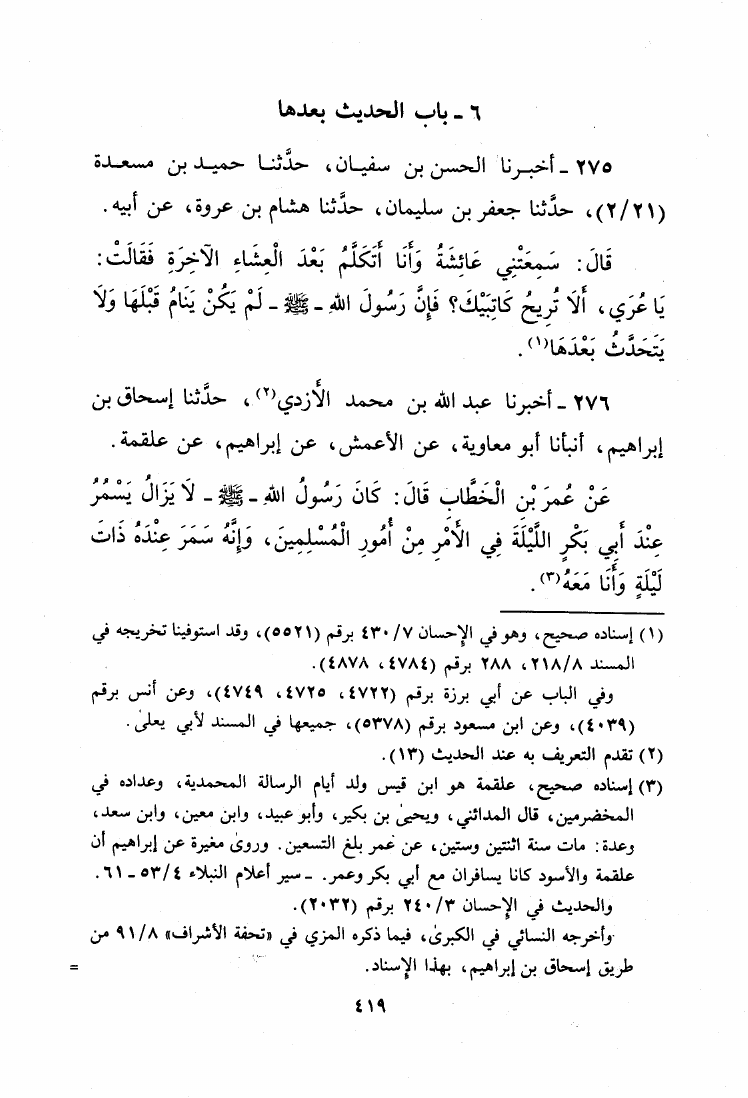 ٦ ـ باب الحديث بعدها
٢٧٥ ـ أخبرنا الحسن بن سفيان، حدَّثنا حميد بن مسعدة
(٢/٢١)، حدَّثنا جعفر بن سليمان، حدَّثنا هشام بن عروة، عن أبيه.
قَالَ: سَمِعَتْنِي عَائِشَةُ وَأَنَا أَتَكَلَّمُ بَعْدَ الْعِشَاءِ الآخِرَةِ فَقَالَتْ:
يَا عُرَي، أَلَا تُرِيحُ كَاتِبَيْكَ؟ فَإِنَّ رَسُولَ اللهِ ـ ﷺ ـ لَمْ يَكُنْ يَنَامُ قَبْلَهَا وَلَا
يَتَحَدَّثُ بَعْدَهَا(١).
٢٧٦ ـ أخبرنا عبد الله بن محمد الأزدي(٢)، حدَّثنا إسحاق بن
إبراهيم، أنبأنا أبو معاوية، عن الأعمش، عن إبراهيم، عن علقمة.
عَنْ عُمَرَ بْنِ الْخَطَّابِ قَالَ: كَانَ رَسُولُ اللهِ ـ ﷺ ـ لَا يَزَالُ يَسْمُرُ
عِنْدَ أَبِي بَكْرٍ اللَّيْلَةَ فِي الأَمْرِ مِنْ أُمُورِ الْمُسْلِمِينَ، وَإِنَّهُ سَمَرَ عِنْدَهُ ذَاتَ
لَيْلَةٍ وَأَنَا مَعَهُ(٣).
(١) إسناده صحيح، وهو في الإحسان ٤٣٠/٧ برقم (٥٥٢١)، وقد استوفينا تخريجه في
المسند ٢١٨/٨، ٢٨٨ برقم (٤٧٨٤، ٤٨٧٨).
وفي الباب عن أبي برزة برقم (٤٧٢٢، ٤٧٢٥، ٤٧٤٩)، وعن أنس برقم
(٤٠٣٩)، وعن ابن مسعود برقم (٥٣٧٨)، جميعها في المسند لأبي يعلىٰ.
(٢) تقدم التعريف به عند الحديث (١٣).
(٣) إسناده صحيح، علقمة هو ابن قيس ولد أيام الرسالة المحمدية، وعداده في
المخضرمين، قال المدائني، ويحيىٰ بن بكير، وأبو عبيد، وابن معين، وابن سعد،
وعدة: مات سنة اثنتين وستين، عن عمر بلغ التسعين. وروىٰ مغيرة عن إبراهيم أن
علقمة والأسود كانا يسافران مع أبي بكر وعمر. ـ سير أعلام النبلاء ٥٣/٤ ـ ٦١.
والحديث في الإحسان ٢٤٠/٣ برقم (٢٠٣٢).
وأخرجه النسائي في الكبرىٰ، فيما ذكره المزي في «تحفة الأشراف» ٩١/٨ من
طريق إسحاق بن إبراهيم، بهذا الإسناد. =
٤١٩